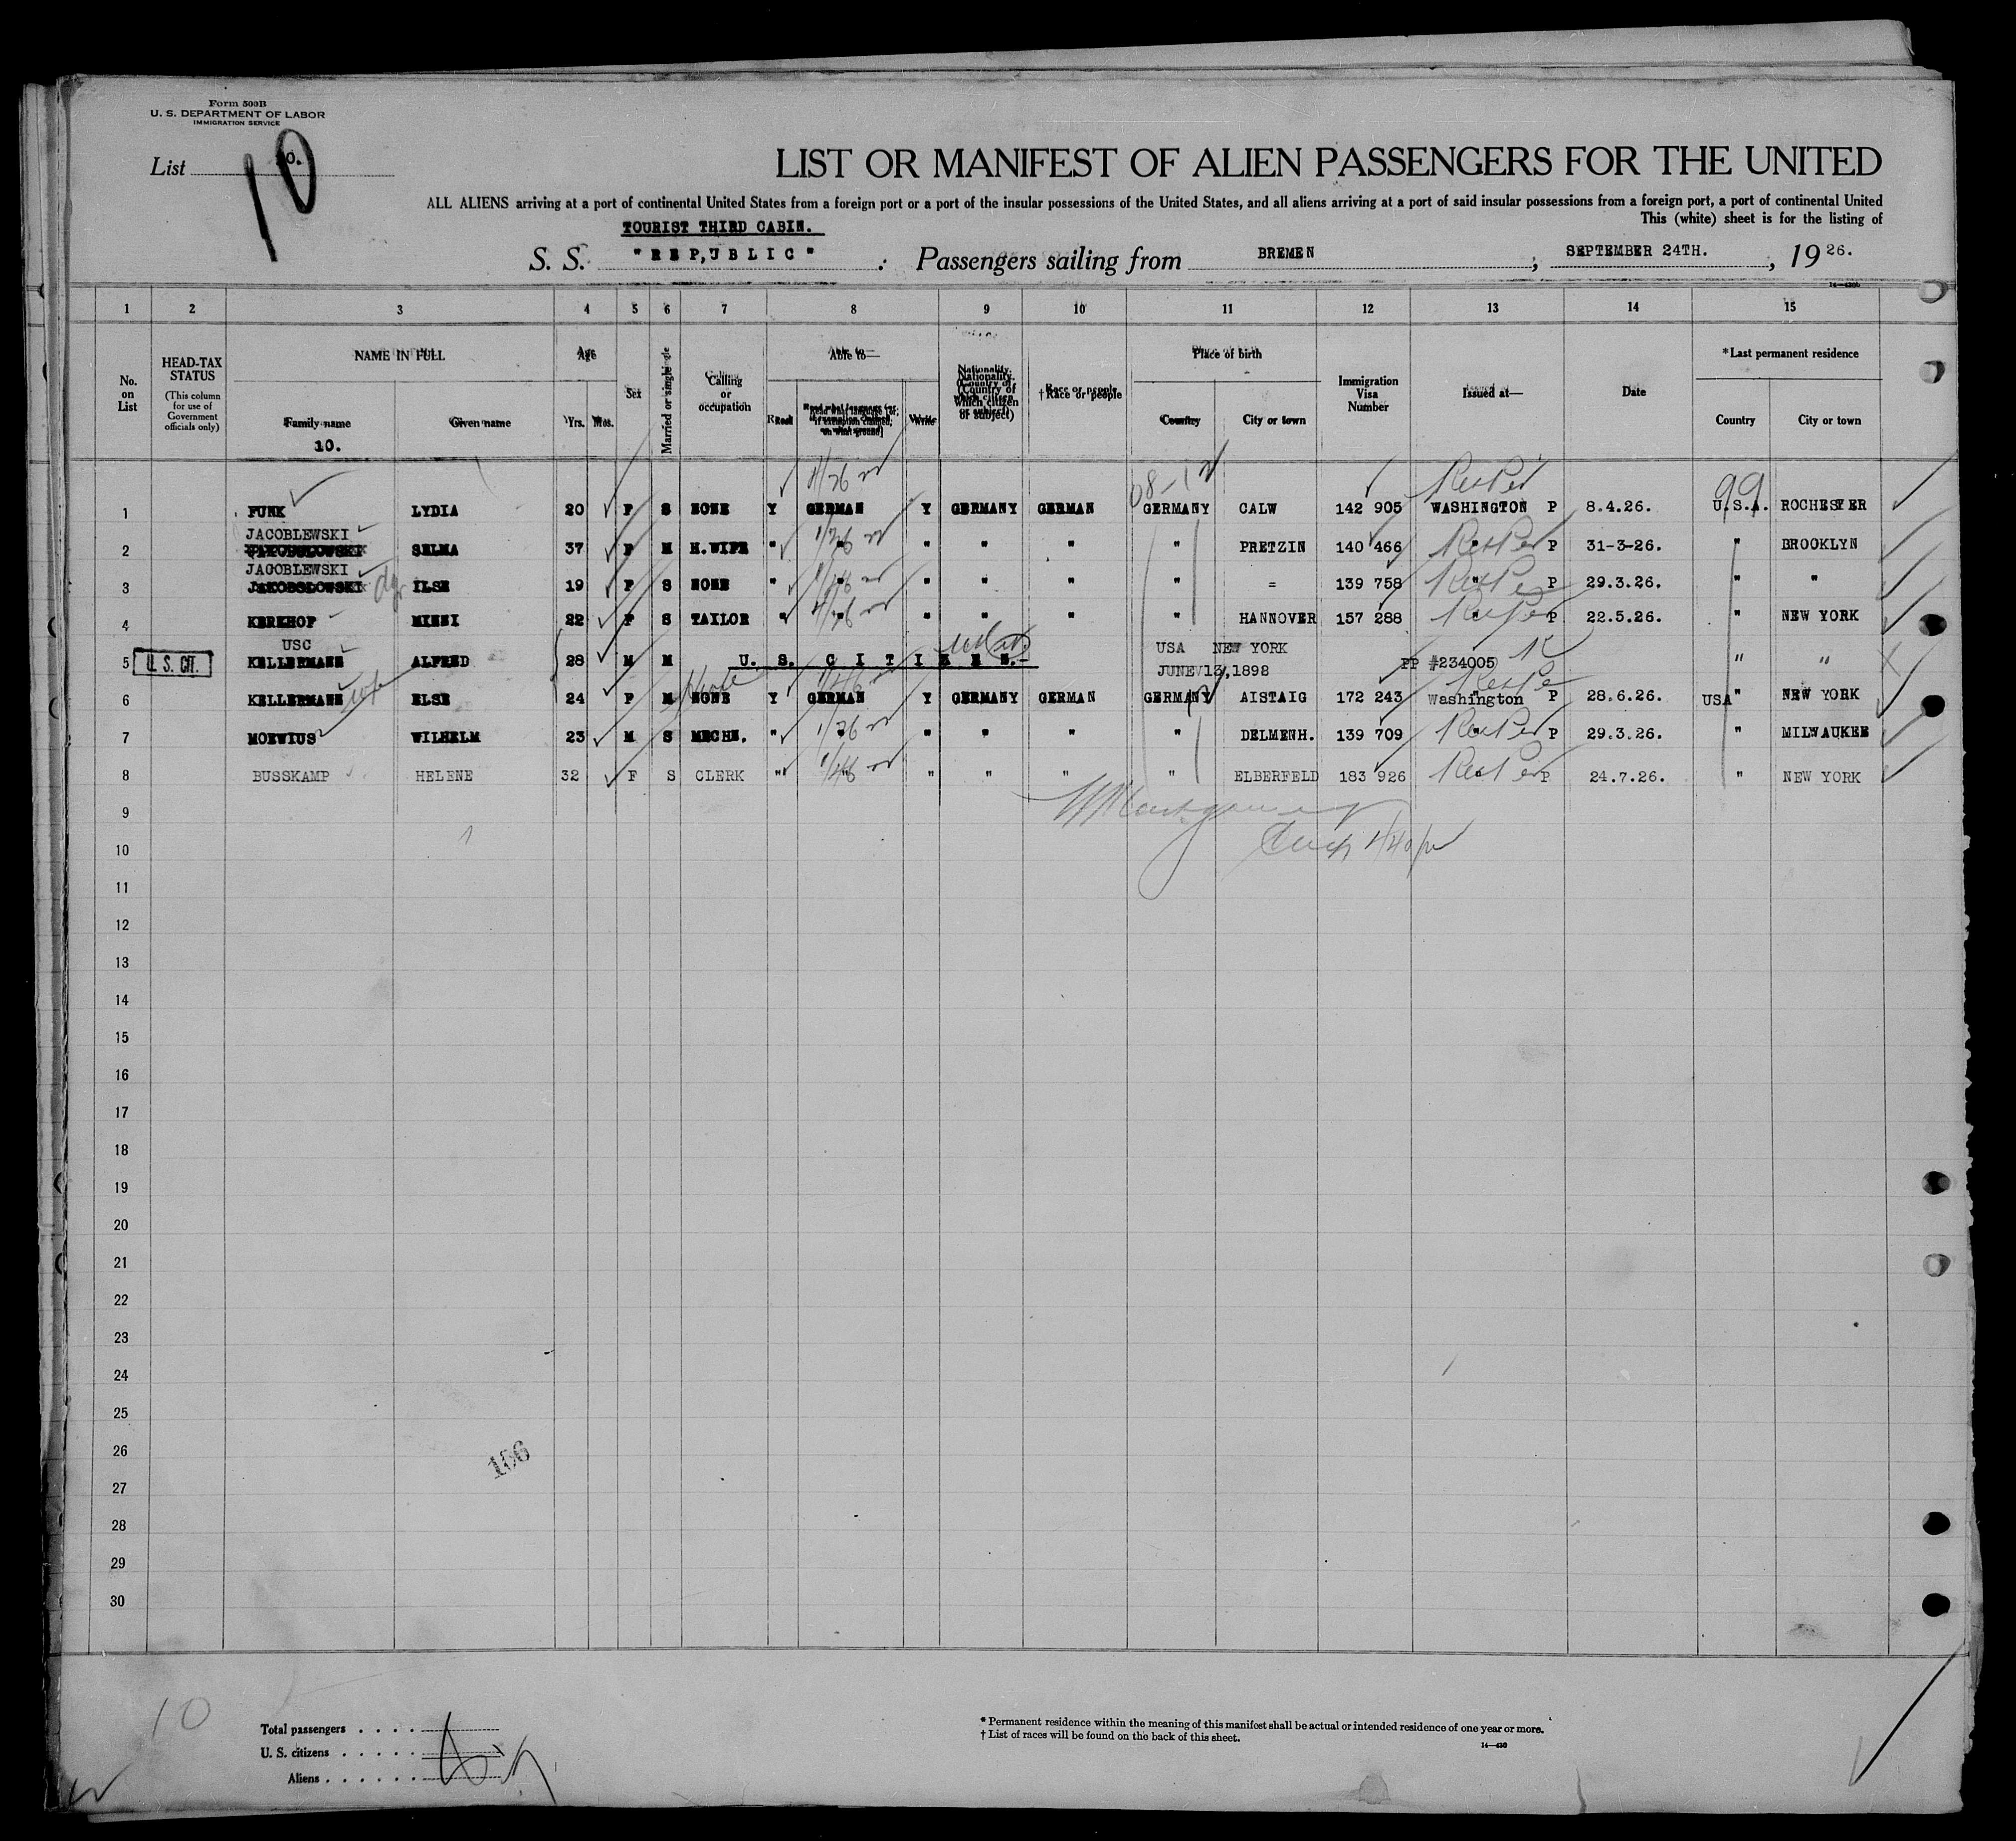 Form 500B
U. S. DEPARTMENT OF LABOR
IMMIGRATION SERVICE
List 10
LIST OR MANIFEST OF ALIEN PASSENGERS FOR THE UNITED
ALL ALIENS arriving at a port of continental United States from a foreign port or a port of the insular possessions of the United States, and all aliens arriving at a port of said insular possessions from a foreign port, a port of continental United
This (white) sheet is for the listing of
TOURIST THIRD CABIN.
S. S. "REP,UBLIC" : Passengers sailing from BREMEN ; SEPTEMBER 24TH. , 1926.
1 2 3 4 5 6 7 8 9 10 11 12 13 14 15
No. on List HEAD-TAX STATUS (This column for use of Government officials only) NAME IN FULL Age Sex Married or single Calling or occupation Able to— Nationality. (Country of which citizen or subject) †Race or people Place of birth Immigration Visa Number Issued at— Date *Last permanent residence
Family name Given name Yrs. Mos. Read Read what language [or, if exemption claimed, on what ground] Write Country City or town Country City or town
10.
08-12 99
1 FUNK LYDIA 20 F S NONE Y GERMAN Y GERMANY GERMAN GERMANY CALW 142 905 WASHINGTON P 8.4.26. U.S.A. ROCHESTER
JACOBLEWSKI
2 SELMA 37 F M H.WIFE " " " " " " PRETZIN 140 466 " P 31-3-26. " BROOKLYN
JAGOBLEWSKI
3 JAKOBSLOWSKI ILSE 19 F S NONE " " " " " " = 139 758 " P 29.3.26. " "
4 KERKHOF MINNI 22 F S TAILOR " " " " " " HANNOVER 157 288 " P 22.5.26. " NEW YORK
USC USA NEW YORK
5 U. S. CIT. KELLERMANN ALFRED 28 M M U. S. CITIZEN.- JUNE 13,1898 PP #234005 " "
6 KELLERMANN wife ELSE 24 F M NONE Y GERMAN Y GERMANY GERMAN GERMANY AISTAIG 172 243 Washington P 28.6.26. USA" NEW YORK
7 MOEWIUS WILHELM 23 M S MECHN. " " " " " " DELMENH. 139 709 " P 29.3.26. " MILWAUKEE
8 BUSSKAMP HELENE 32 F S CLERK " " " " " " ELBERFELD 183 926 P 24.7.26. " NEW YORK
9
10
11
12
13
14
15
16
17
18
19
20
21
22
23
24
25
26
27
28
29
30
10
Total passengers . . . .
U. S. citizens . . . . .
Aliens . . . . . .
* Permanent residence within the meaning of this manifest shall be actual or intended residence of one year or more.
† List of races will be found on the back of this sheet.
14—430